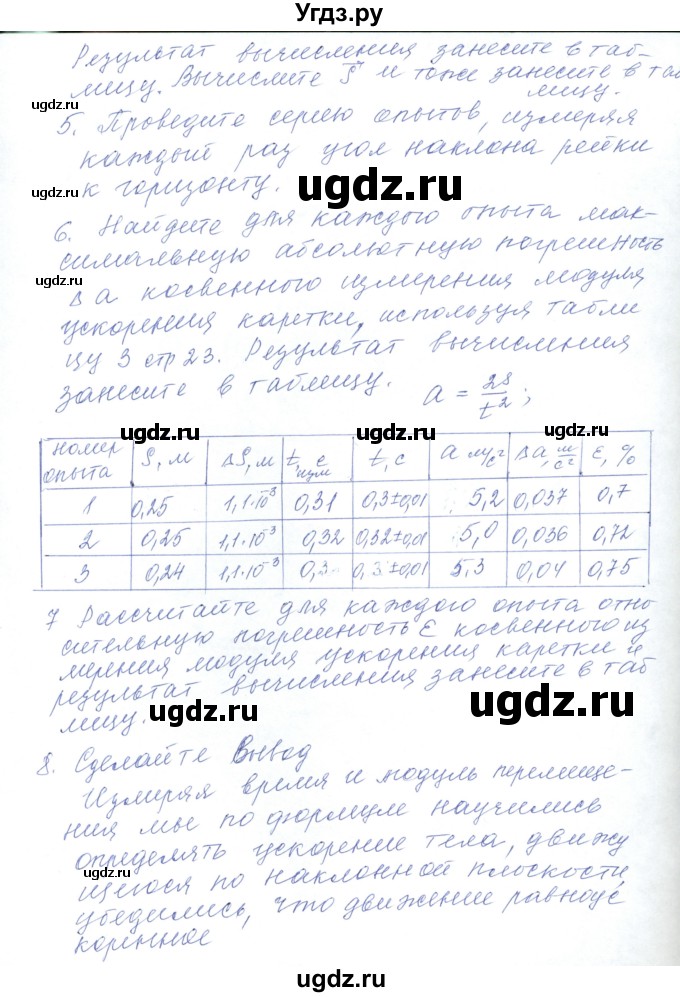 Угдз.ру
Результат вычисления занесите в таб-
лицу. Вычислите S и тоже занесите в таб
лицу.
ugdz.ru
5. Проведите серию опытов, измеряя
каждый раз угол наклона рейки
ugdz.ru
к горизонту.
ugdz.ru
6. Найдите для каждого опыта мак-
симальную абсолютную погрешность
ugdz.ru
Δa косвенного измерения модуля
ускорения каретки, используя табли
цу 3 стр 23. Результат вычисления
занесите в таблицу. a = 2S/t²;
ugdz.ru ugdz.ru ugdz.ru
номер опыта | S, м | ΔS, м | t изм, с | t, с | a м/с² | Δa, м/с² | ε, %
1 | 0,25 | 1,1·10⁻³ | 0,31 | 0,3±0,01 | 5,2 | 0,037 | 0,7
2 | 0,25 | 1,1·10⁻³ | 0,32 | 0,32±0,01 | 5,0 | 0,036 | 0,72
3 | 0,24 | 1,1·10⁻³ | 0,3 | 0,3±0,01 | 5,3 | 0,04 | 0,75
7 Рассчитайте для каждого опыта отно
сительную погрешность ε косвенного из
мерения модуля ускорения каретки и
результат вычисления занесите в таб
лицу.
ugdz.ru ugdz.ru
8. Сделайте Вывод
Измеряя время и модуль перемеще-
ния мы по формуле научились
ugdz.ru ugdz.ru
определять ускорение тела, движу
ugdz.ru
щегося по наклонной плоскости
убедились, что движение равноус
коренное
ugdz.ru